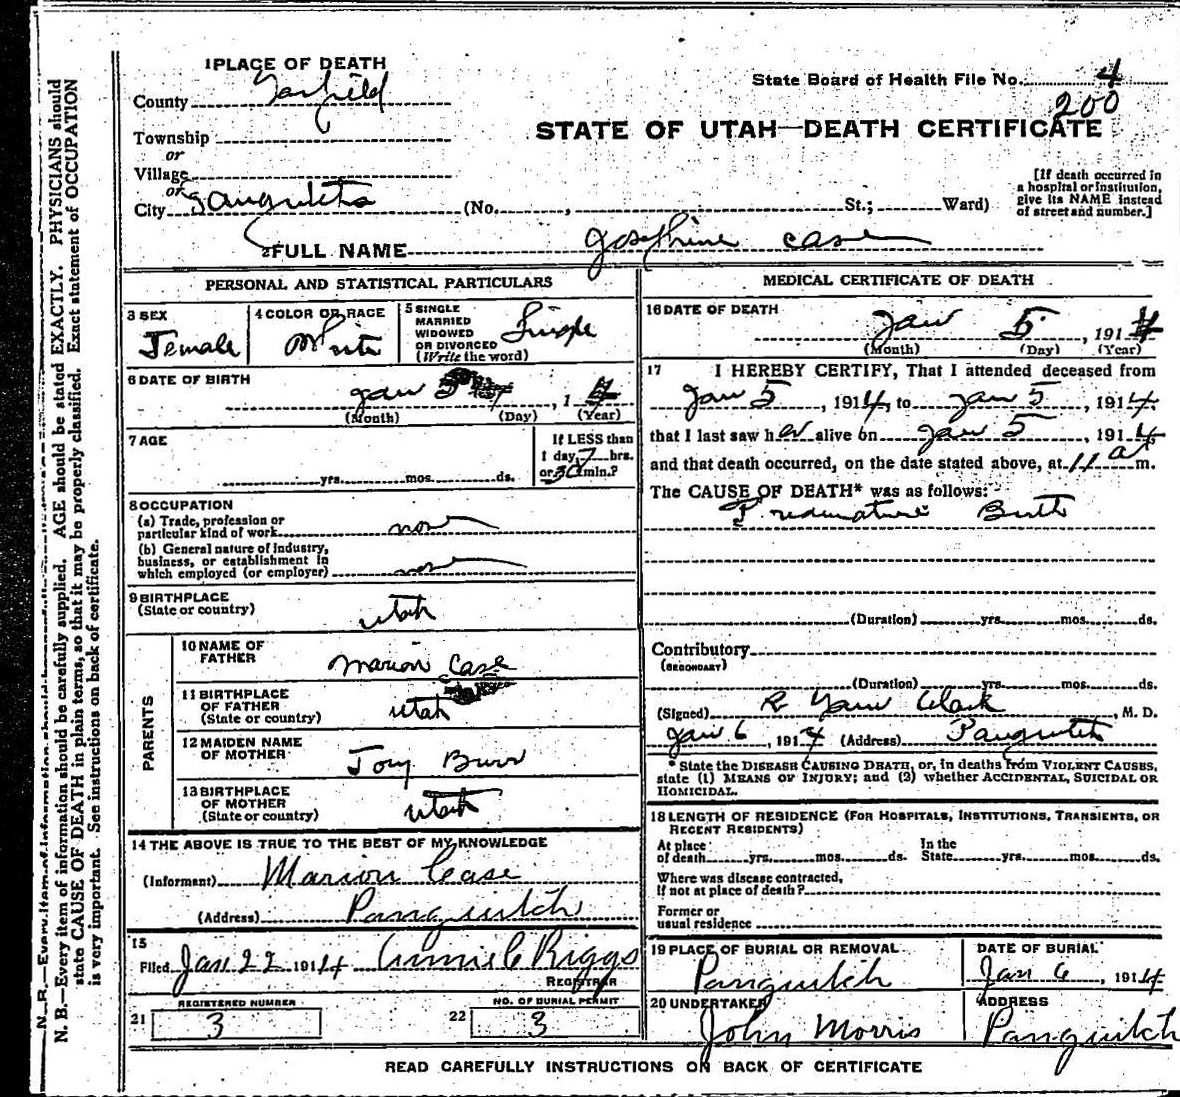 1 PLACE OF DEATH
County Garfield
Township
or
Village
or
City Panguitch (No. , St.; Ward)
State Board of Health File No. 4
200
STATE OF UTAH—DEATH CERTIFICATE
[If death occurred in
a hospital or institution,
give its NAME instead
of street and number.]
2 FULL NAME Josephine Case
PERSONAL AND STATISTICAL PARTICULARS
3 SEX
Female
4 COLOR OR RACE
White
5 SINGLE
MARRIED
WIDOWED
OR DIVORCED
(Write the word)
Single
6 DATE OF BIRTH
Jan 5 , 1
(Month) (Day) (Year)
7 AGE
yrs. mos. ds.
If LESS than
1 day, 7 hrs.
or 30 min.?
8 OCCUPATION
(a) Trade, profession or
particular kind of work
(b) General nature of industry,
business, or establishment in
which employed (or employer)
9 BIRTHPLACE
(State or country)
Utah
PARENTS
10 NAME OF
FATHER
Marion Case
11 BIRTHPLACE
OF FATHER
(State or country)
Utah
12 MAIDEN NAME
OF MOTHER
Burr
13 BIRTHPLACE
OF MOTHER
(State or country)
Utah
14 THE ABOVE IS TRUE TO THE BEST OF MY KNOWLEDGE
(Informant) Marion Case
(Address) Panguitch
15
Filed Jan 22 1914 Annie C Riggs
REGISTRAR
REGISTERED NUMBER
21 3
NO. OF BURIAL PERMIT
22 3
MEDICAL CERTIFICATE OF DEATH
16 DATE OF DEATH
Jan 5 , 1914
(Month) (Day) (Year)
17 I HEREBY CERTIFY, That I attended deceased from
Jan 5 , 1914, to Jan 5 , 1914.
that I last saw her alive on Jan 5 , 1914
and that death occurred, on the date stated above, at 11 a m.
The CAUSE OF DEATH* was as follows:
Premature Birth
(Duration) yrs. mos. ds.
Contributory
(SECONDARY)
(Duration) yrs. mos. ds.
(Signed) R Clark , M. D.
Jan 6 , 1914 (Address) Panguitch
* State the DISEASE CAUSING DEATH, or, in deaths from VIOLENT CAUSES,
state (1) MEANS OF INJURY; and (2) whether ACCIDENTAL, SUICIDAL OR
HOMICIDAL.
18 LENGTH OF RESIDENCE (FOR HOSPITALS, INSTITUTIONS, TRANSIENTS, OR
RECENT RESIDENTS)
At place In the
of death yrs. mos. ds. State yrs. mos. ds.
Where was disease contracted,
If not at place of death?
Former or
usual residence
19 PLACE OF BURIAL OR REMOVAL
Panguitch
DATE OF BURIAL
Jan 6 , 1914
20 UNDERTAKER
John Morris
ADDRESS
Panguitch
READ CAREFULLY INSTRUCTIONS ON BACK OF CERTIFICATE
N. B.—Every item of information should be carefully supplied. AGE should be stated EXACTLY. PHYSICIANS should
state CAUSE OF DEATH in plain terms, so that it may be properly classified. Exact statement of OCCUPATION
is very important. See instructions on back of certificate.